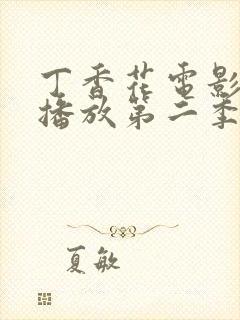 丁香花电影
播放第二季
夏敏